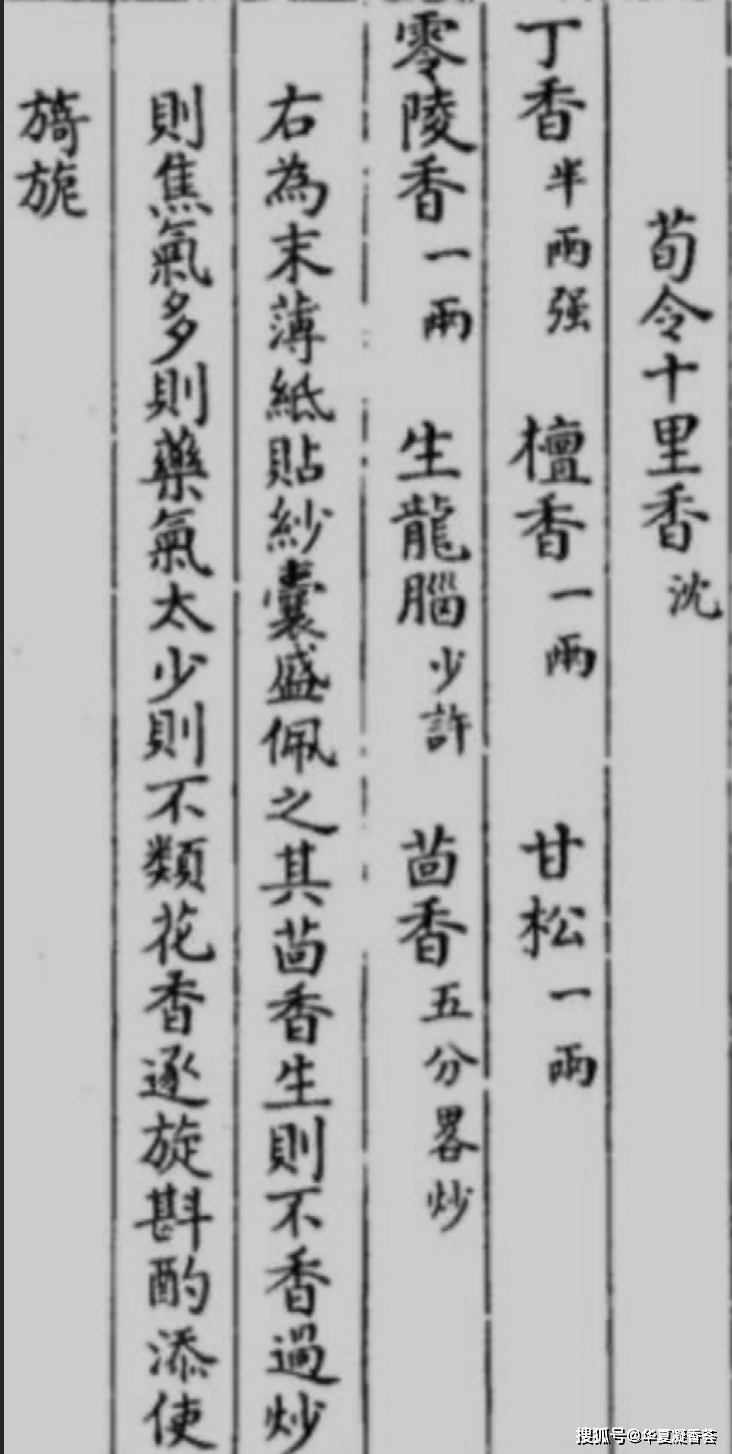 荀令十里香 沈
丁香 半兩强 檀香 一兩 甘松 一兩
零陵香 一兩 生龍腦 少許 茴香 五分畧炒
右為末薄紙貼紗囊盛佩之其茴香生則不香過炒
則焦氣多則藥氣太少則不類花香逐旋斟酌添使
旖旎
搜狐号@华夏凝香荟